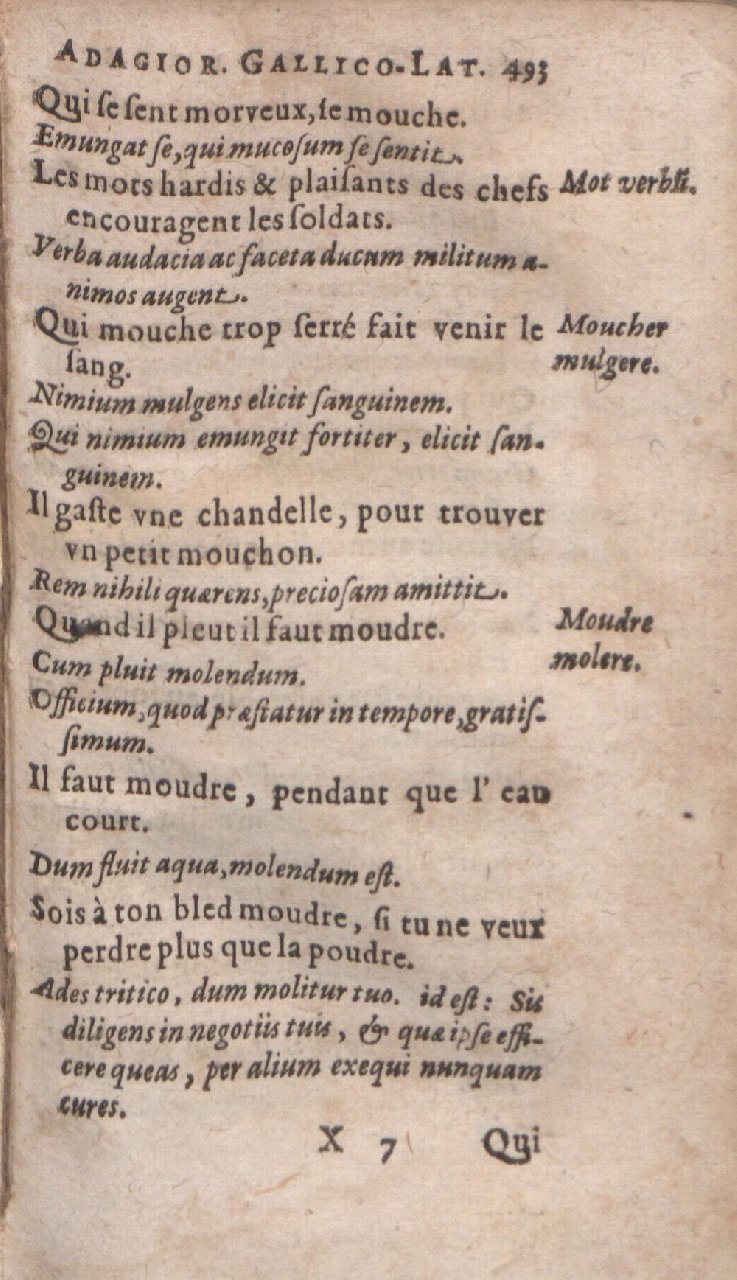 ADAGIOR. GALLICO-LAT. 493
Qui se sent morveux, se mouche.
Emungat se, qui mucosum se sentit.
Les mots hardis & plaisants des chefs
encouragent les soldats.
Mot verbũ.
Verba audacia ac faceta ducum militum a-
nimos augent.
Qui mouche trop serré fait venir le
sang.
Moucher
mulgere.
Nimium mulgens elicit sanguinem.
Qui nimium emungit fortiter, elicit san-
guinem.
Il gaste vne chandelle, pour trouver
vn petit mouchon.
Rem nihili quærens, preciosam amittit.
Quand il pleut il faut moudre.
Moudre
molere.
Cum pluit molendum.
Officium, quod præstatur in tempore, gratis-
simum.
Il faut moudre, pendant que l' eau
court.
Dum fluit aqua, molendum est.
Sois à ton bled moudre, si tu ne veux
perdre plus que la poudre.
Ades tritico, dum molitur tuo. id est: Sis
diligens in negotiis tuis, & quæ ipse effi-
cere queas, per alium exequi nunquam
cures.
X 7 Qui